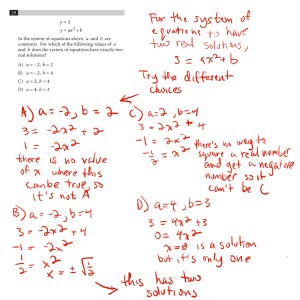 28
y = 3
y = ax² + b
In the system of equations above, a and b are
constants. For which of the following values of a
and b does the system of equations have exactly two
real solutions?
A) a = −2, b = 2
B) a = −2, b = 4
C) a = 2, b = 4
D) a = 4, b = 3
For the system of
equations to have
two real solutions,
3 = ax² + b
Try the different
choices
A) a = -2, b = 2
3 = -2x² + 2
1 = -2x²
there is no value
of x where this
can be true, so
it's not A
B) a = -2, b = 4
3 = -2x² + 4
-1 = -2x²
1/2 = x²
x = ± √1/2
C) a = 2, b = 4
3 = 2x² + 4
-1 = 2x²
-1/2 = x²
there's no way to
square a real number
and get a negative
number so it
can't be C
D) a = 4, b = 3
3 = 4x² + 3
0 = 4x²
x = 0 is a solution
but it's only one
this has two
solutions